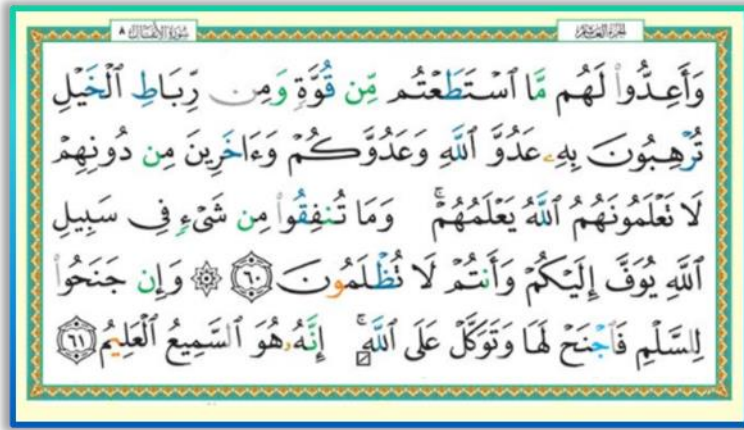 سُورَةُ الأَنفَالِ ٨
الجزء العاشر
وَأَعِدُّوا۟ لَهُم مَّا ٱسْتَطَعْتُم مِّن قُوَّةٍ وَمِن رِّبَاطِ ٱلْخَيْلِ
تُرْهِبُونَ بِهِۦ عَدُوَّ ٱللَّهِ وَعَدُوَّكُمْ وَءَاخَرِينَ مِن دُونِهِمْ
لَا تَعْلَمُونَهُمُ ٱللَّهُ يَعْلَمُهُمْ ۚ وَمَا تُنفِقُوا۟ مِن شَىْءٍ فِى سَبِيلِ
ٱللَّهِ يُوَفَّ إِلَيْكُمْ وَأَنتُمْ لَا تُظْلَمُونَ ٦٠ ۞ وَإِن جَنَحُوا۟
لِلسَّلْمِ فَٱجْنَحْ لَهَا وَتَوَكَّلْ عَلَى ٱللَّهِ ۚ إِنَّهُۥ هُوَ ٱلسَّمِيعُ ٱلْعَلِيمُ ٦١